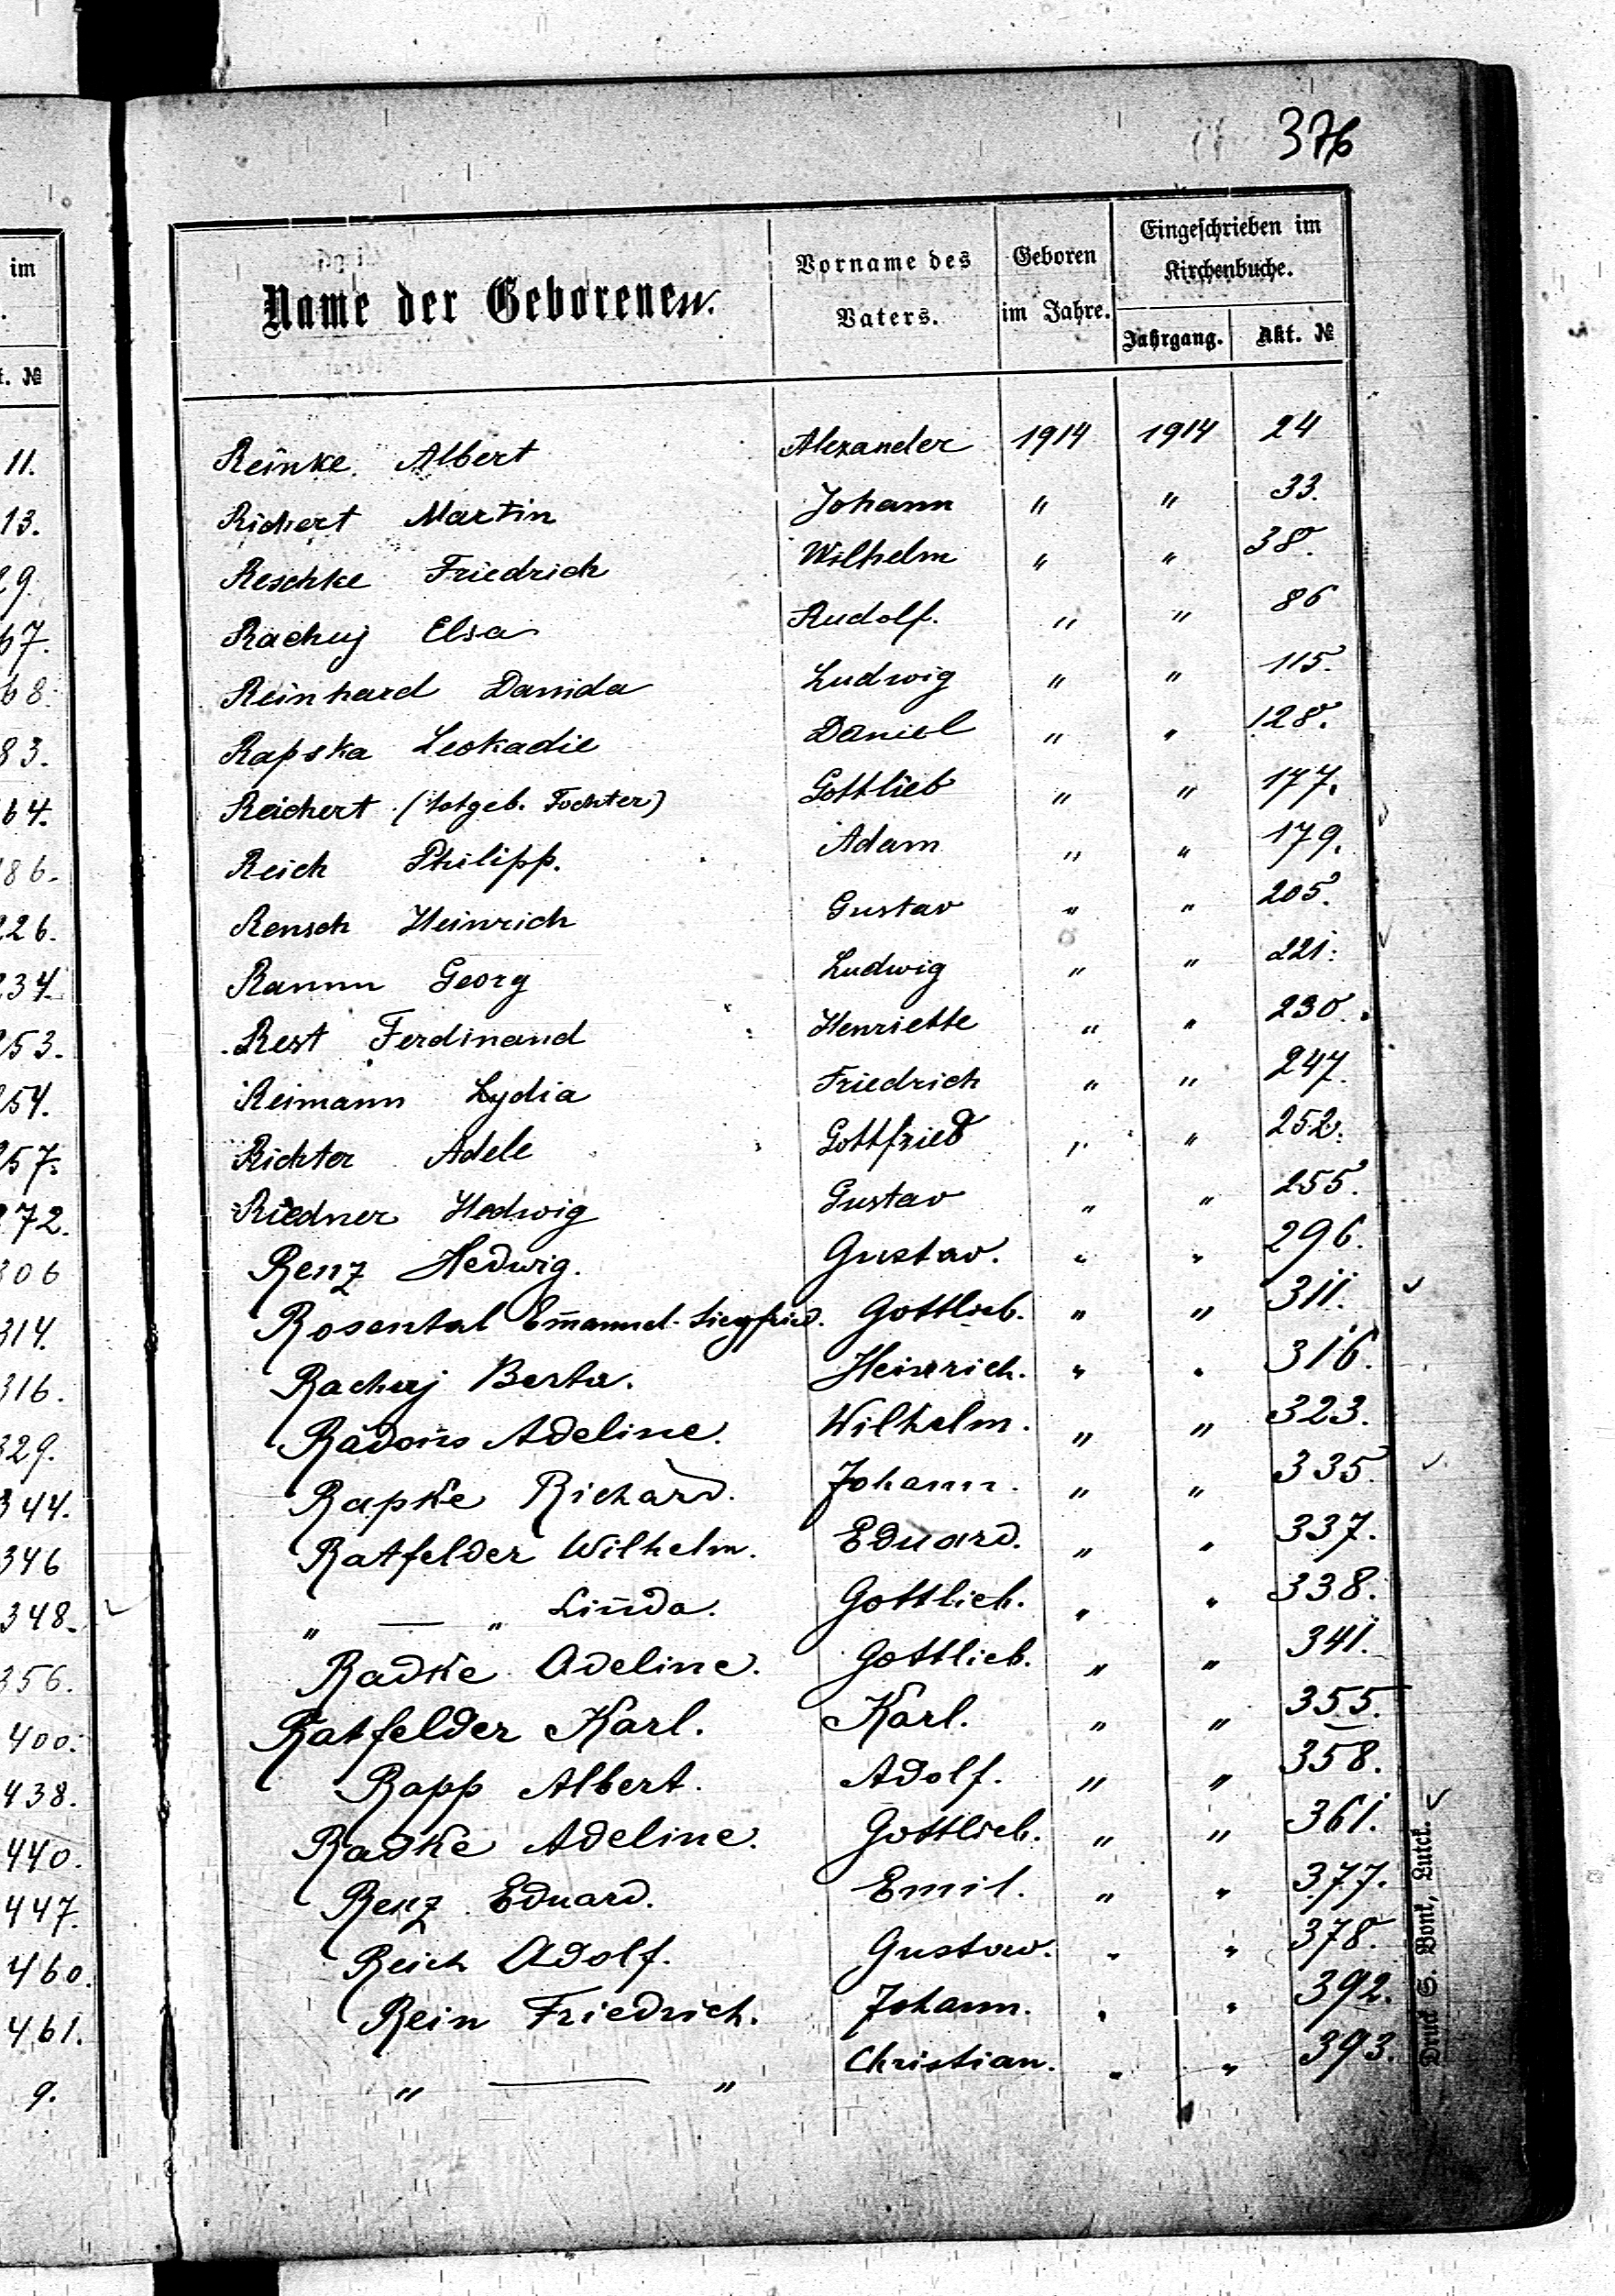 376
im
t. №
11.
13.
29.
67.
68.
83.
64.
186.
226.
234.
253.
254.
257.
272.
306
314.
316.
329.
344.
346
348.
356.
400.
438.
440.
447.
460.
461.
9.
Name der Geborenen.
Vorname des Vaters.
Geboren im Jahre.
Eingeschrieben im Kirchenbuche.
Jahrgang. Akt. №
Reinke Albert Alexander 1914 1914 24
Richert Martin Johann " " 33.
Reschke Friedrich Wilhelm " " 38.
Rachuj Elsa Rudolf. " " 86
Reinhard Danida Ludwig " " 115.
Rapska Leokadie Daniel " " 128.
Reichert (totgeb. Tochter) Gottlieb " " 177.
Reich Philipp. Adam " " 179.
Rensch Heinrich Gustav " " 205.
Ramm Georg Ludwig " " 221.
Rest Ferdinand Henriette " " 230.
Reimann Lydia Friedrich " " 247.
Richter Adele Gottfried " " 252.
Riedner Hedwig Gustav " " 255.
Renz Hedwig. Gustav. " " 296.
Rosental Emanuel-Siegfried. Gottlieb. " " 311.
Rachuj Berta. Heinrich. " " 316.
Adeline. Wilhelm. " " 323.
Rapke Richard. Johann. " " 335.
Ratfelder Wilhelm. Eduard. " " 337.
" — " Linda. Gottlieb. " " 338.
Radke Adeline. Gottlieb. " " 341.
Ratfelder Karl. Karl. " " 355.
Rapp Albert. Adolf. " " 358.
Radke Adeline. Gottlieb. " " 361.
Renz Eduard. Emil. " " 377.
Reich Adolf. Gustav. " " 378.
Rein Friedrich. Johann. " " 392.
" — " Christian. " " 393.
Druck S. Bonk, Luck.